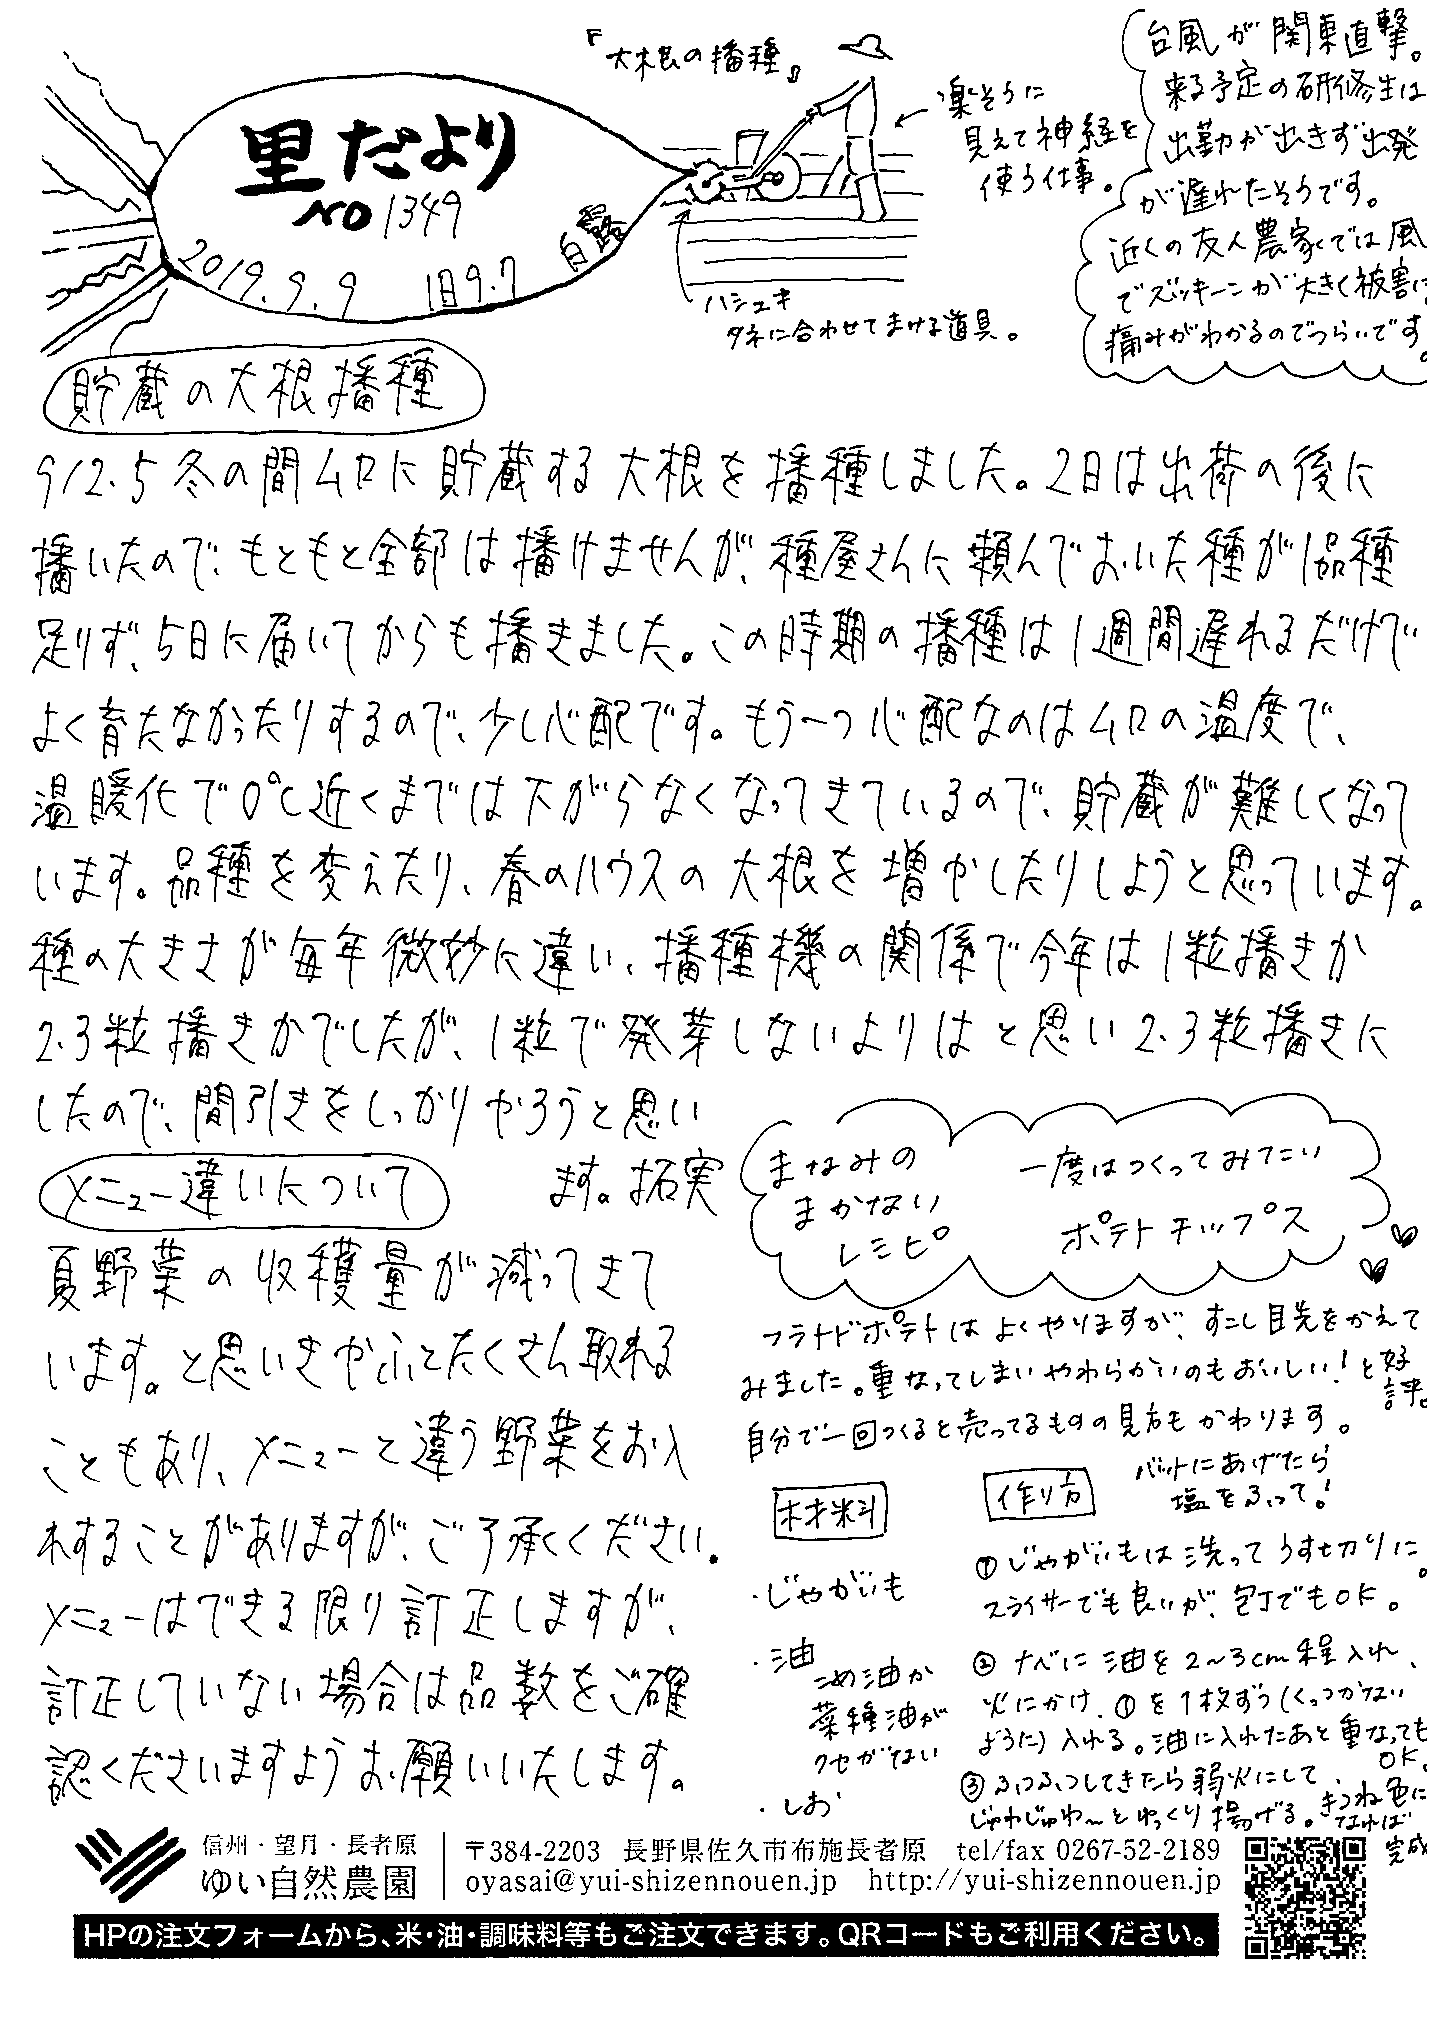 里だより
NO 1349
2019.9.9 旧9.7 白露
『大根の播種』
楽そうに
見えて神経を
使う仕事。
ハシュキ
タネに合わせてまける道具。
台風が関東直撃。
来る予定の研修生は
出勤が出きず出発
が遅れたそうです。
近くの友人農家では風
でズッキーニが大きく被害に
痛みがわかるのでつらいです。
貯蔵の大根播種
9/2.5 冬の間ムロに貯蔵する大根を播種しました。2日は出荷の後に
播いたので、もともと全部は播けませんが、種屋さんに頼んでおいた種が1品種
足りず、5日に届いてからも播きました。この時期の播種は1週間遅れるだけで
よく育たなかったりするので、少し心配です。もう一つ心配なのはムロの温度で、
温暖化で0℃近くまでは下がらなくなってきているので、貯蔵が難しくなって
います。品種を変えたり、春のハウスの大根を増やしたりしようと思っています。
種の大きさが毎年微妙に違い、播種機の関係で今年は1粒播きか
2.3粒播きかでしたが、1粒で発芽しないよりはと思い2.3粒播きに
したので、間引きをしっかりやろうと思い
ます。拓実
メニュー違いについて
夏野菜の収穫量が減ってきて
います。と思いきやふとたくさん取れる
こともあり、メニューと違う野菜をお入
れすることがありますが、ご了承ください。
メニューはできる限り訂正しますが、
訂正していない場合は品数をご確
認くださいますようお願いいたします。
まなみの
まかない
レシピ
一度はつくってみてこい
ポテトチップス
フライドポテトはよくやりますが、すこし目先をかえて
みました。重なってしまいやわらかいのもおいしい!と好評。
自分で一回つくると売ってるものの見方もかわります。
バットにあげたら
塩をふって!
材料
・じゃがいも
・油
こめ油か
菜種油が
クセがない
・しお
作り方
①じゃがいもは洗ってうす切りに。
スライサーでも良いが、包丁でもOK。
②ナベに油を2〜3cm程入れ、
火にかけ、①を1枚ずつ(くっつかない
ように)入れる。油に入れたあと重なっても
OK。
③ふつふつしてきたら弱火にして、
じゅわじゅわ〜とゆっくり揚げる。きつね色に
なれば
完成
信州・望月・長者原
ゆい自然農園
〒384-2203 長野県佐久市布施長者原 tel/fax 0267-52-2189
oyasai@yui-shizennouen.jp http://yui-shizennouen.jp
HPの注文フォームから、米・油・調味料等もご注文できます。QRコードもご利用ください。